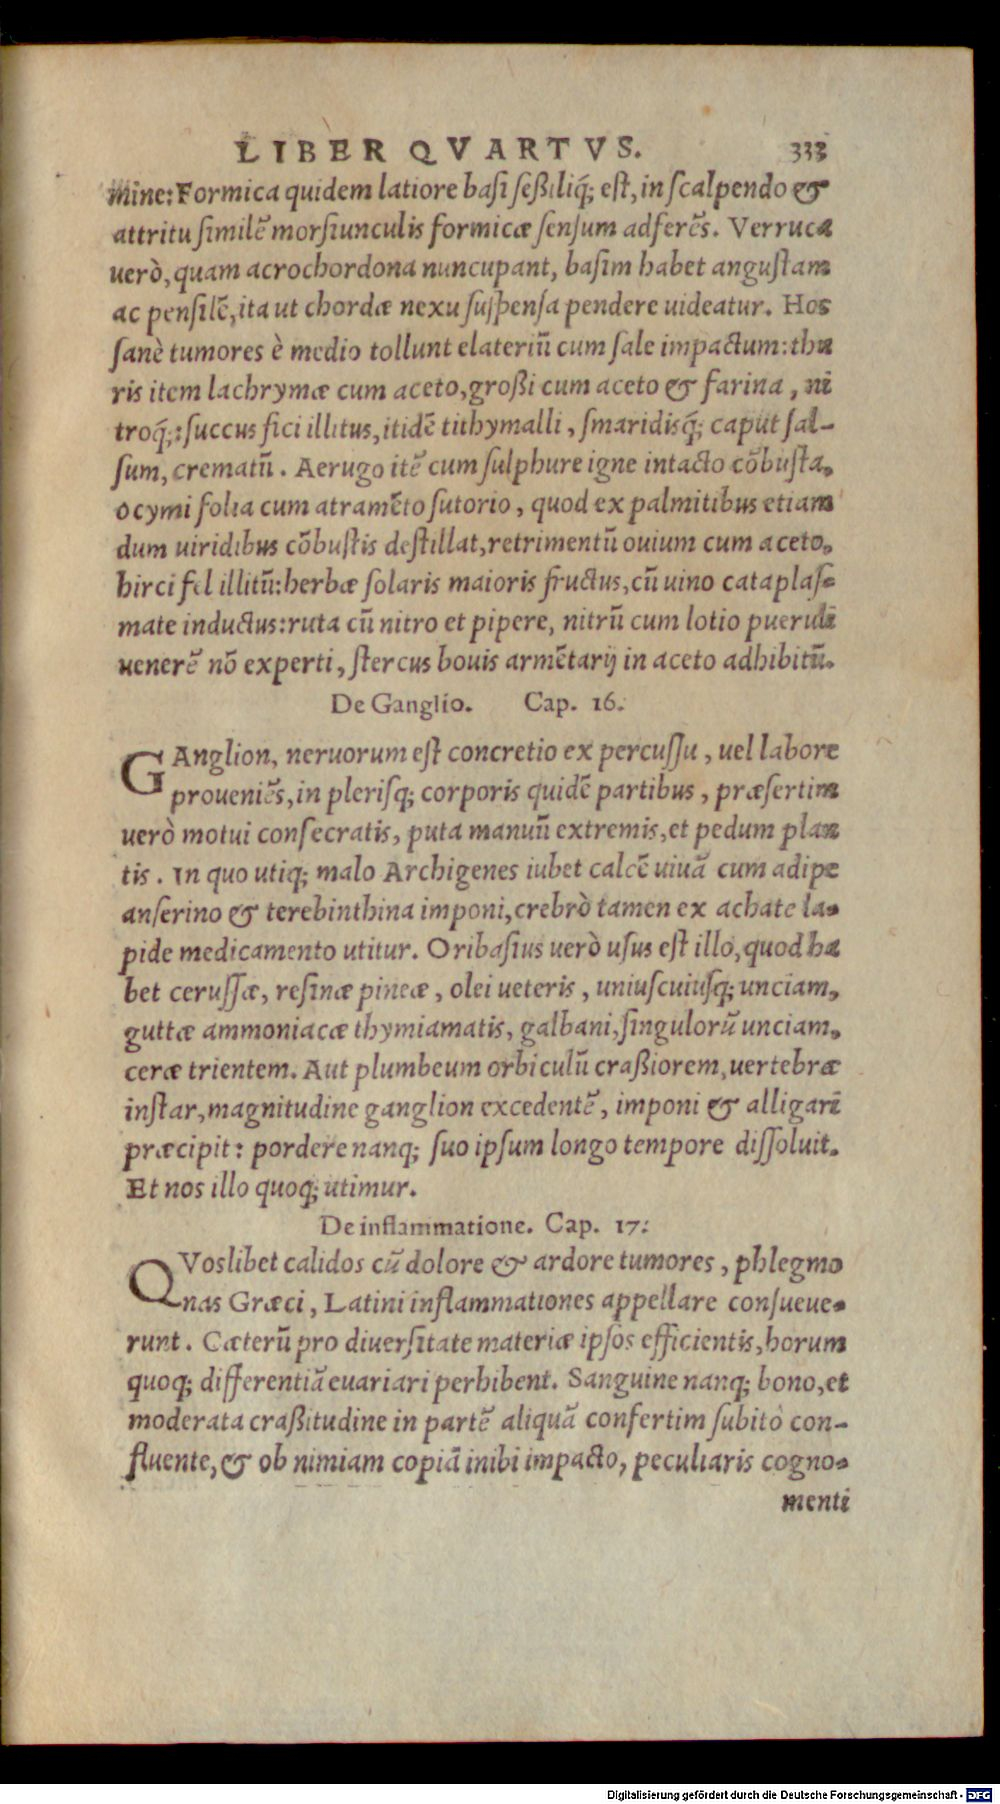 LIBER QVARTVS. 333
mine: Formica quidem latiore basi seßiliq́; est, in scalpendo &
attritu similē morsiunculis formicæ sensum adferēs. Verruca
uerò, quam acrochordona nuncupant, basim habet angustam
ac pensilē, ita ut chordæ nexu suspensa pendere uideatur. Hos
sanè tumores è medio tollunt elateriū cum sale impactum: thu
ris item lachrymæ cum aceto, großi cum aceto & farina, ni
troq́;: succus fici illitus, itidē tithymalli, smaridisq́; caput sal-
sum, crematū. Aerugo itē cum sulphure igne intacto cōbusta,
ocymi folia cum atramēto sutorio, quod ex palmitibus etiam
dum uiridibus cōbustis destillat, retrimentū ouium cum aceto,
hirci fel illitū: herbæ solaris maioris fructus, cū uino cataplas-
mate inductus: ruta cū nitro et pipere, nitrū cum lotio pueruli
uenerē nō experti, stercus bouis armētarij in aceto adhibitū.
De Ganglio. Cap. 16.
GAnglion, neruorum est concretio ex percussu, uel labore
proueniēs, in plerisq; corporis quidē partibus, præsertim
uerò motui consecratis, puta manuū extremis, et pedum plan
tis. In quo utiq; malo Archigenes iubet calcē uiuā cum adipe
anserino & terebinthina imponi, crebrò tamen ex achate la-
pide medicamento utitur. Oribasius uerò usus est illo, quod ha
bet cerussæ, resinæ pineæ, olei ueteris, uniuscuiusq; unciam,
guttæ ammoniacæ thymiamatis, galbani, singulorū unciam,
ceræ trientem. Aut plumbeum orbiculū craßiorem, uertebræ
instar, magnitudine ganglion excedentē, imponi & alligari
præcipit: pordere nanq; suo ipsum longo tempore dissoluit.
Et nos illo quoq; utimur.
De inflammatione. Cap. 17.
QVoslibet calidos cū dolore & ardore tumores, phlegmo
nas Græci, Latini inflammationes appellare consueue-
runt. Cæterū pro diuersitate materiæ ipsos efficientis, horum
quoq; differentiā euariari perhibent. Sanguine nanq; bono, et
moderata craßitudine in partē aliquā confertim subitò con-
fluente, & ob nimiam copiā inibi impacto, peculiaris cogno-
menti
Digitalisierung gefördert durch die Deutsche Forschungsgemeinschaft - DFG